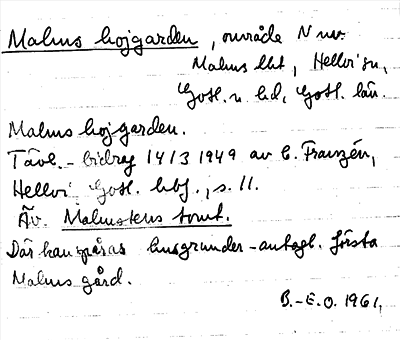 Malms hojgarden, område N nv.
Malms lht, Hellvi sn,
Gotl. n hd, Gotl. län.
Malms hojgarden.
Tävl.-bidrag 14/3 1949 av C. Franzén,
Hellvi Gotl. hbf., s. 11.
Äv. Malmstens tomt.
Där kan spåras husgrunder - antagl. första
Malms gård.
B.-E.O. 1961,